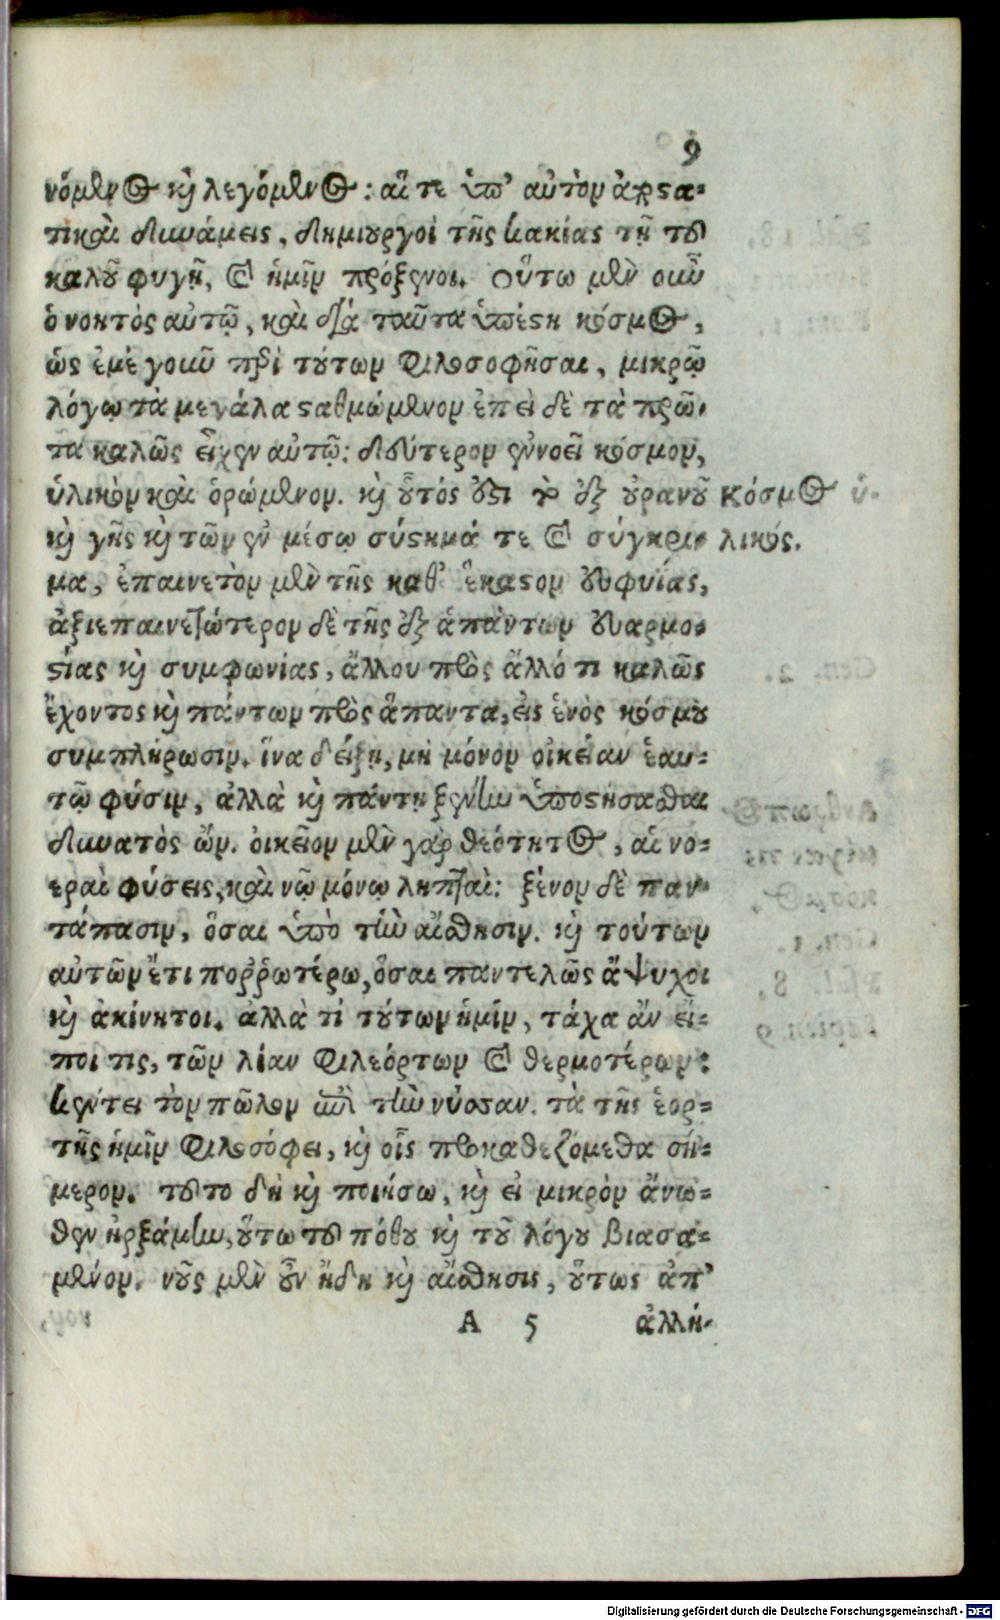 9
νόμενος καὶ λεγόμενος: αἵ τε ὑπ' αὐτὸν ἀποστα-
τικαὶ δυνάμεις, δημιουργοὶ τῆς κακίας τῇ τοῦ
καλοῦ φυγῇ, καὶ ἡμῖν πρόξενοι. Οὕτω μὲν οὖν
ὁ νοητὸς αὐτῷ, καὶ διὰ ταῦτα ὑπέστη κόσμος,
ὡς ἐμὲ γοῦν περὶ τούτων φιλοσοφῆσαι, μικρῷ
λόγῳ τὰ μεγάλα σταθμώμενον ἐπεὶ δὲ τὰ πρῶ-
τα καλῶς εἶχεν αὐτῷ: δεύτερον ἐννοεῖ κόσμον,
ὑλικὸν καὶ ὁρώμενον. καὶ οὗτός ἐστι τὸ ἐξ οὐρανοῦ
καὶ γῆς καὶ τῶν ἐν μέσῳ σύστημά τε καὶ σύγκρι-
μα, ἐπαινετὸν μὲν τῆς καθ' ἕκαστον εὐφυΐας,
ἀξιεπαινετώτερον δὲ τῆς ἐξ ἁπάντων εὐαρμο-
στίας καὶ συμφωνίας, ἄλλου πρὸς ἄλλό τι καλῶς
ἔχοντος καὶ πάντων πρὸς ἅπαντα, εἰς ἑνὸς κόσμου
συμπλήρωσιν. ἵνα δείξῃ, μὴ μόνον οἰκείαν ἑαυ-
τῷ φύσιν, ἀλλὰ καὶ πάντη ξένην ὑποστήσασθαι
δυνατὸς ὤν. οἰκεῖον μὲν γὰρ θεότητος, αἱ νο-
εραὶ φύσεις, καὶ νῷ μόνῳ ληπταί: ξένον δὲ παν-
τάπασιν, ὅσαι ὑπὸ τὴν αἴσθησιν. καὶ τούτων
αὐτῶν ἔτι ποῤῥωτέρω, ὅσαι παντελῶς ἄψυχοι
καὶ ἀκίνητοι. ἀλλὰ τί τούτων ἡμῖν, τάχα ἂν εἴ-
ποι τις, τῶν λίαν φιλεόρτων καὶ θερμοτέρων:
κέντει τὸν πῶλον περὶ τὴν νύσσαν. τὰ τῆς ἑορ-
τῆς ἡμῖν φιλοσόφει, καὶ οἷς προκαθεζόμεθα σή-
μερον. τοῦτο δὴ καὶ ποιήσω, καὶ εἰ μικρὸν ἄνω-
θεν ἠρξάμην, οὕτω τοῦ πόθου καὶ τοῦ λόγου βιασα-
μένον. νοῦς μὲν οὖν ἤδη καὶ αἴσθησις, οὕτως ἀπ'
Κόσμος ὑ-
λικός.
A 5 ἀλλή-
Digitalisierung gefördert durch die Deutsche Forschungsgemeinschaft - DFG